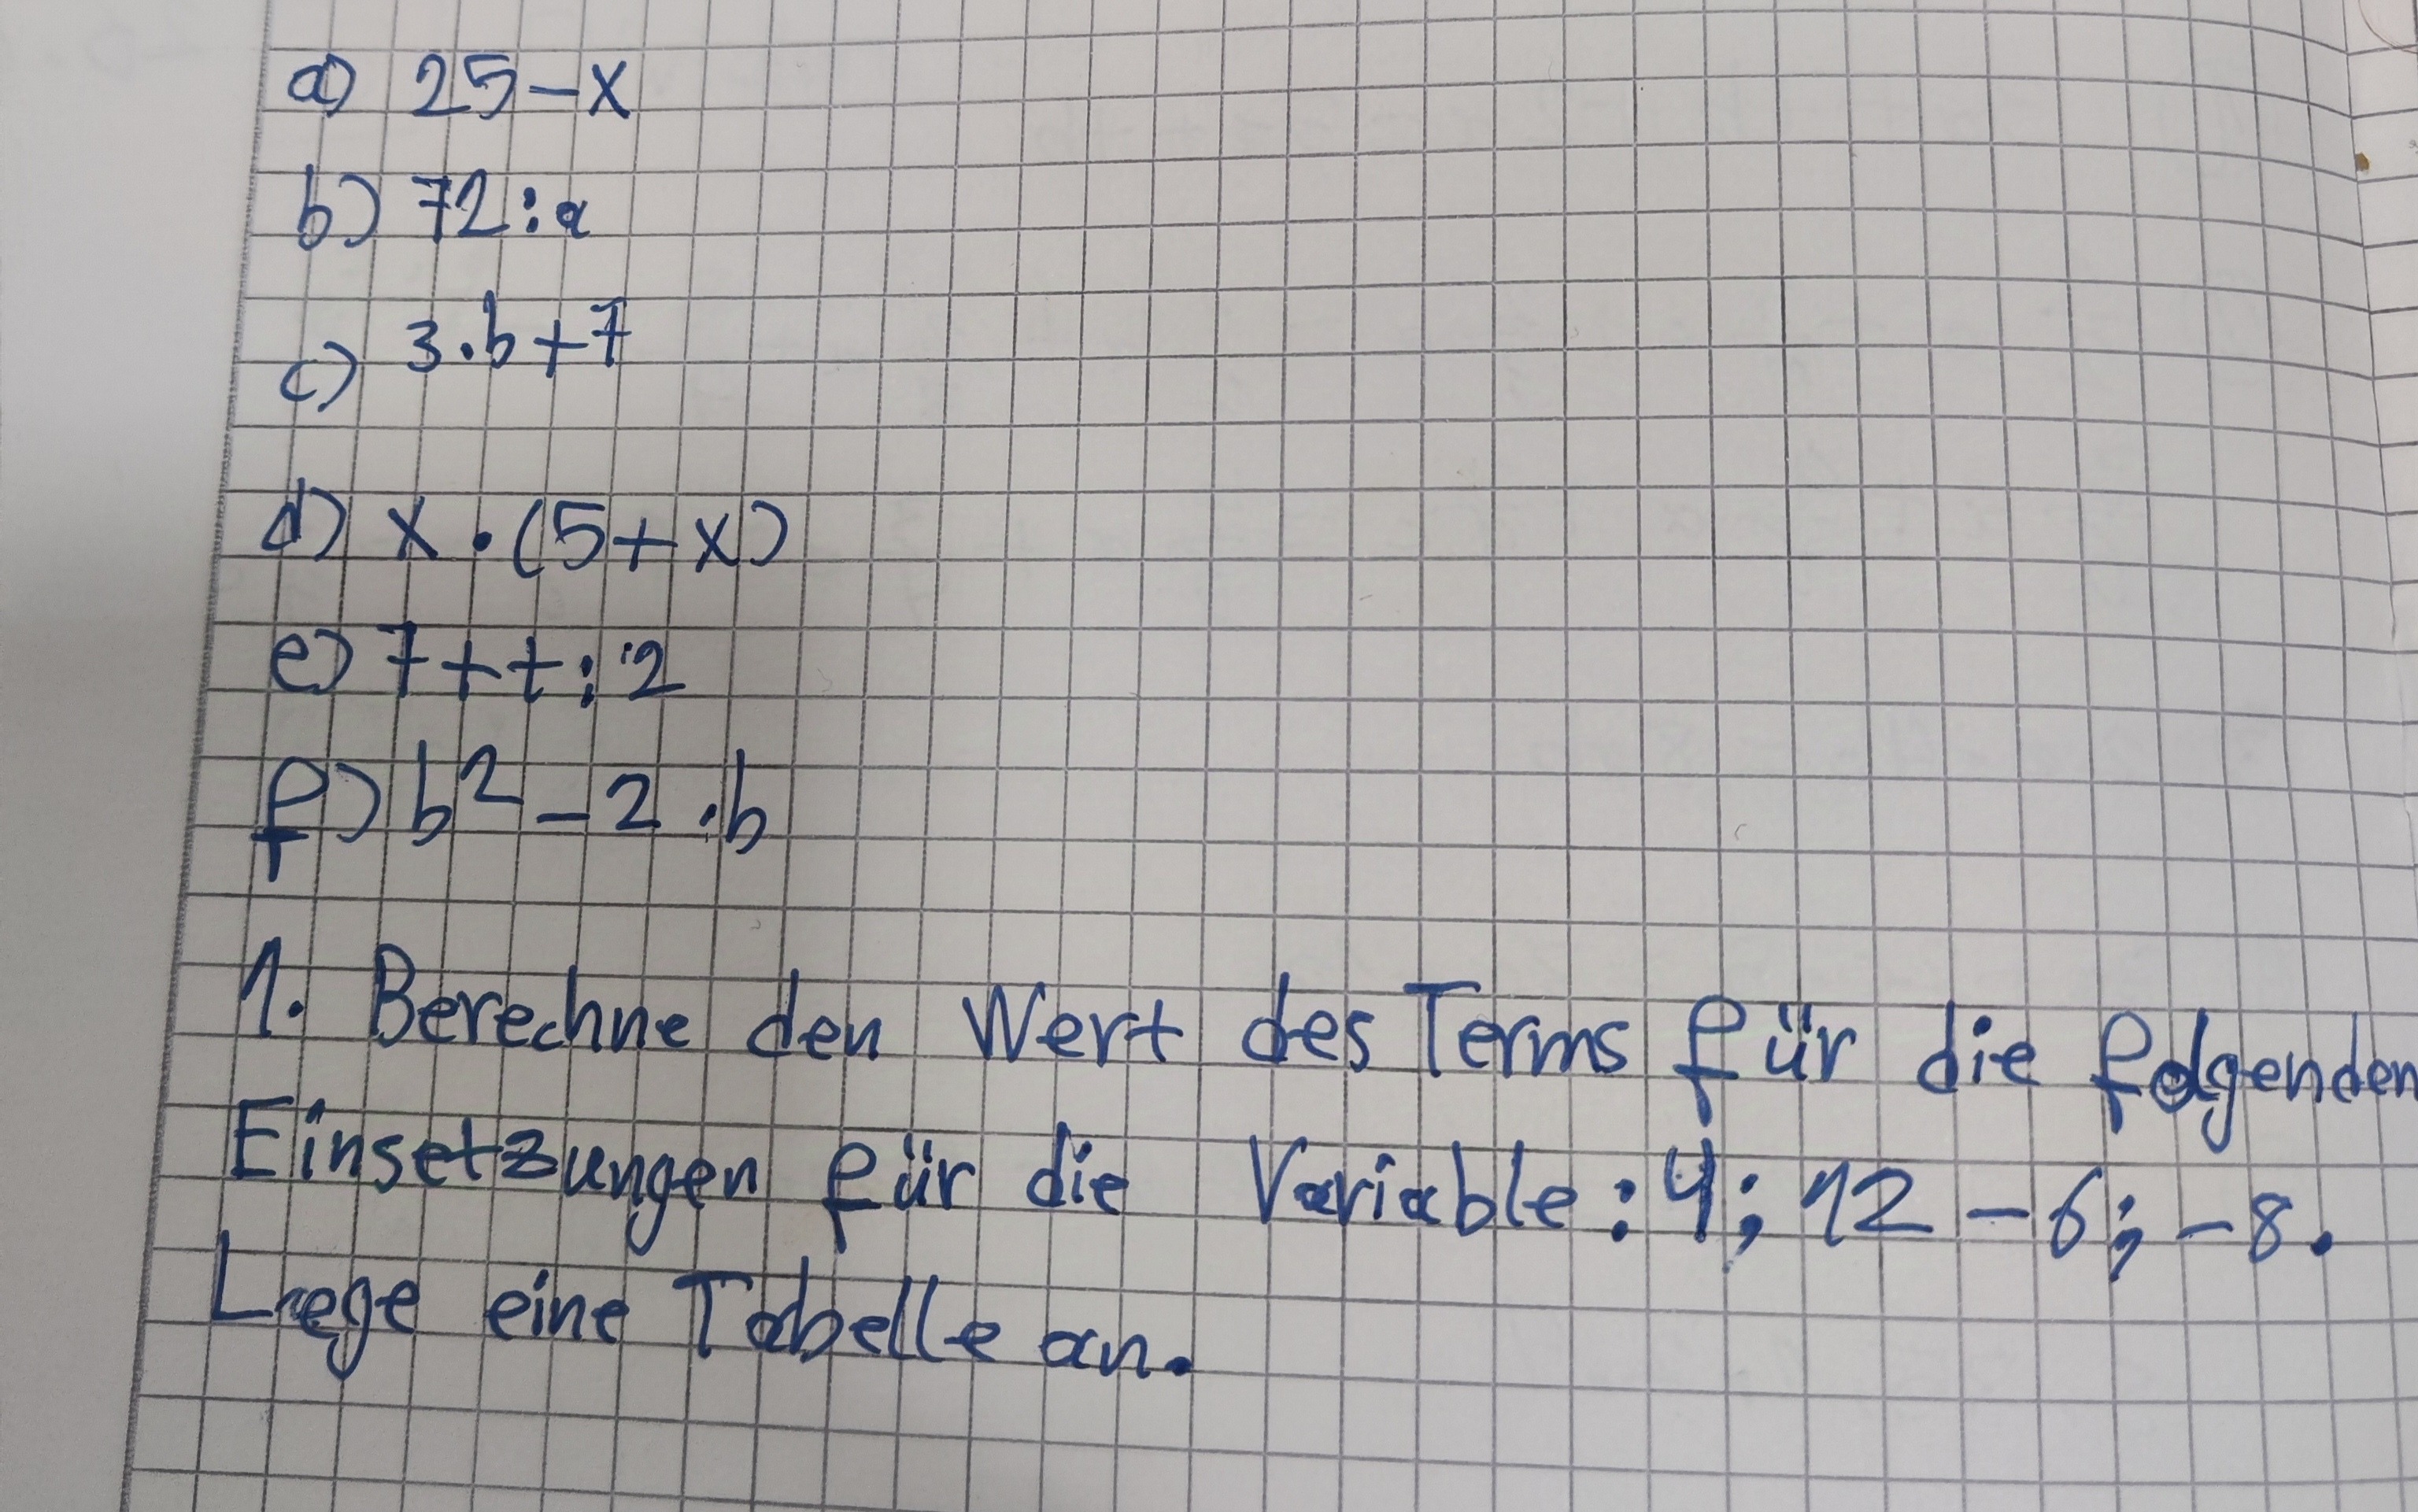 a) 25-x
b) 72:a
c) 3·b+7
d) x·(5+x)
e) 7+t:2
f) b²-2·b
1. Berechne den Wert des Terms für die folgenden
Einsetzungen für die Variable: 4; 12 -6; -8.
Lege eine Tabelle an.